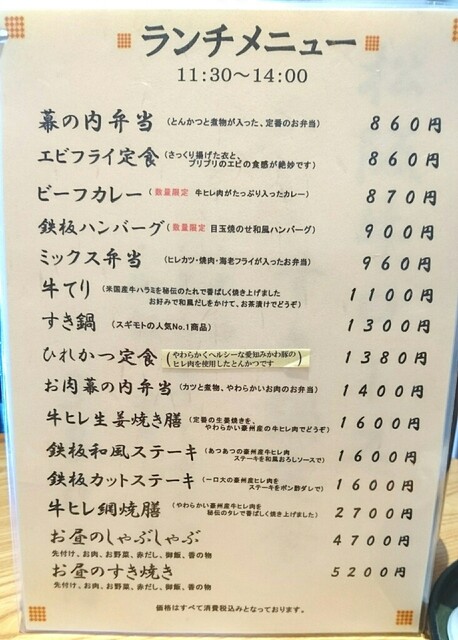 ランチメニュー
11:30～14:00
幕の内弁当 (とんかつと煮物が入った、定番のお弁当) 860円
エビフライ定食 (さっくり揚げた衣と、
プリプリのエビの食感が絶妙です) 860円
ビーフカレー (数量限定 牛ヒレ肉がたっぷり入ったカレー) 870円
鉄板ハンバーグ (数量限定 目玉焼のせ和風ハンバーグ) 900円
ミックス弁当 (ヒレカツ・焼肉・海老フライが入ったお弁当) 960円
牛てり (米国産牛ハラミを秘伝のたれで香ばしく焼き上げました
お好みで和風だしをかけて、お茶漬けでどうぞ) 1100円
すき鍋 (スギモトの人気No.1商品) 1300円
ひれかつ定食 (やわらかくヘルシーな愛知みかわ豚の
ヒレ肉を使用したとんかつです) 1380円
お肉幕の内弁当 (カツと煮物、やわらかいお肉のお弁当) 1400円
牛ヒレ生姜焼き膳 (定番の生姜焼きを、
やわらかい豪州産の牛ヒレ肉でどうぞ) 1600円
鉄板和風ステーキ (あつあつの豪州産牛ヒレ肉
ステーキを和風おろしソースで) 1600円
鉄板カットステーキ (一口大の豪州産ヒレ肉を
ステーキをポン酢ダレで) 1600円
牛ヒレ網焼膳 (やわらかい豪州産牛ヒレ肉を
秘伝のタレで香ばしく焼き上げました) 2700円
お昼のしゃぶしゃぶ 4700円
先付け、お肉、お野菜、赤だし、御飯、香の物
お昼のすき焼き 5200円
先付け、お肉、お野菜、赤だし、御飯、香の物
価格はすべて消費税込みとなっております。